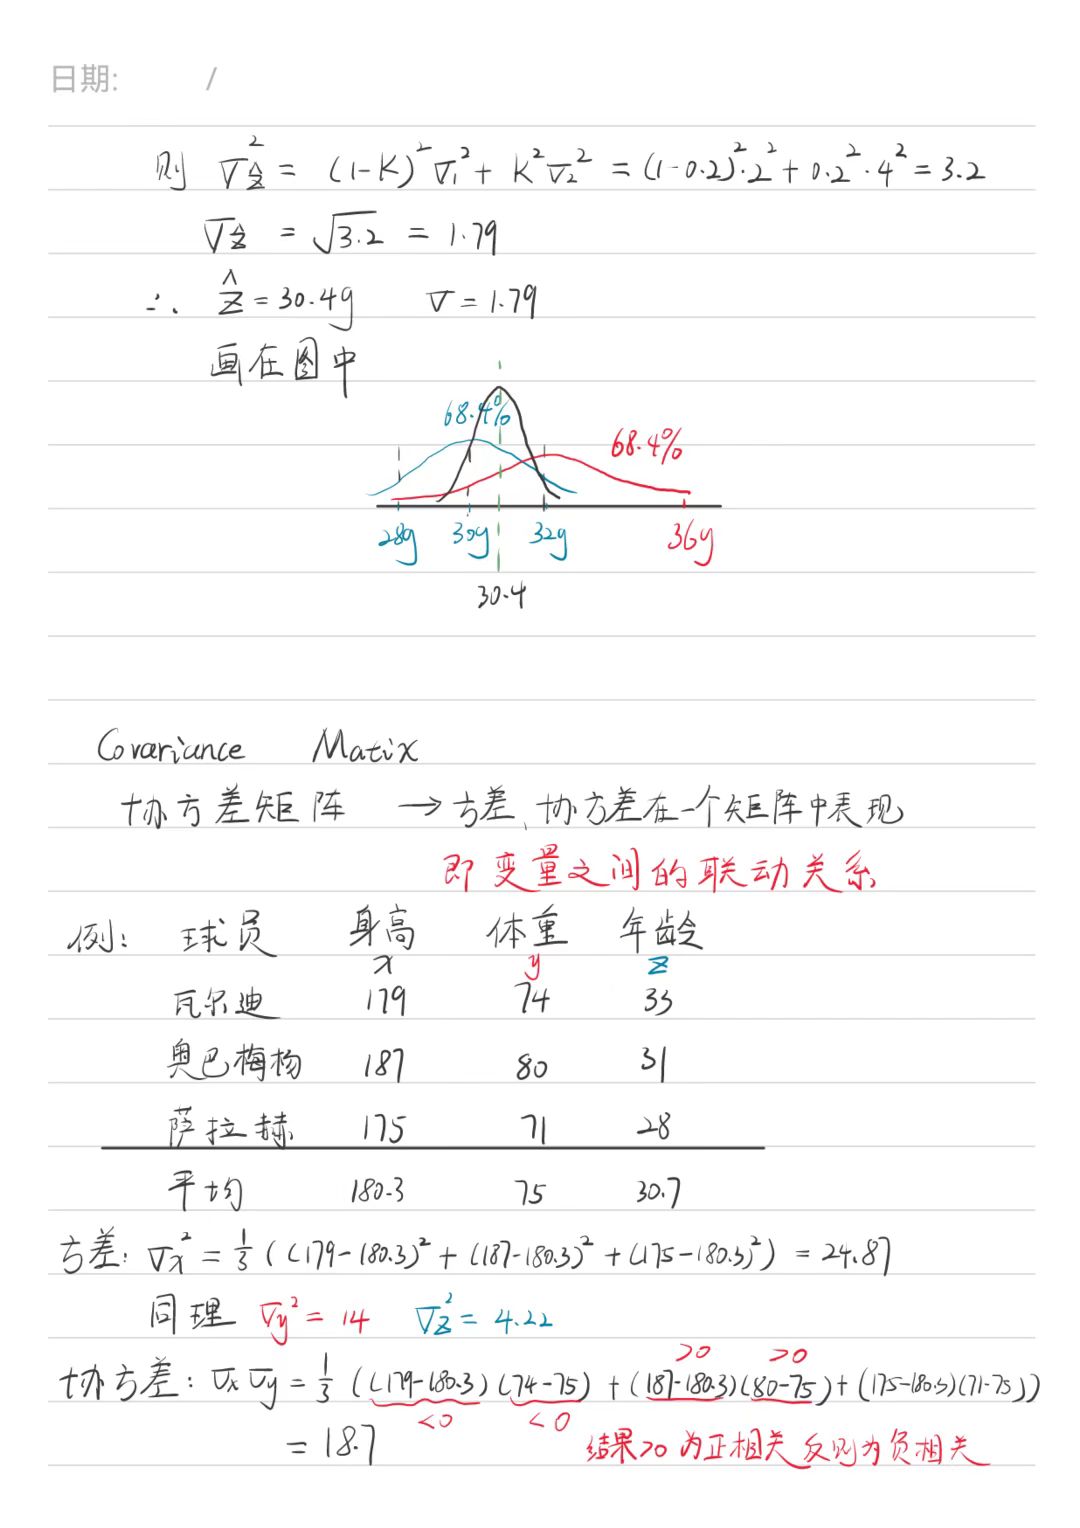 日期: /
则 σ_ẑ² = (1-K)²σ₁² + K²σ₂² = (1-0.2)²·2² + 0.2²·4² = 3.2
σ_ẑ = √3.2 = 1.79
∴ ẑ = 30.4g σ = 1.79
画在图中
68.4% 68.4%
28g 30g 32g 36g
30.4
Covariance Matix
协方差矩阵 → 方差、协方差在一个矩阵中表现
即变量之间的联动关系
例: 球员 身高 体重 年龄
x y z
瓦尔迪 179 74 33
奥巴梅杨 187 80 31
萨拉赫 175 71 28
平均 180.3 75 30.7
方差: σx² = 1/3 ((179-180.3)² + (187-180.3)² + (175-180.3)²) = 24.87
同理 σy² = 14 σz² = 4.22
>0 >0
协方差: σxσy = 1/3 ((179-180.3)(74-75) + (187-180.3)(80-75) + (175-180.3)(71-75))
<0 <0
= 18.7 结果>0 为正相关 反则为负相关